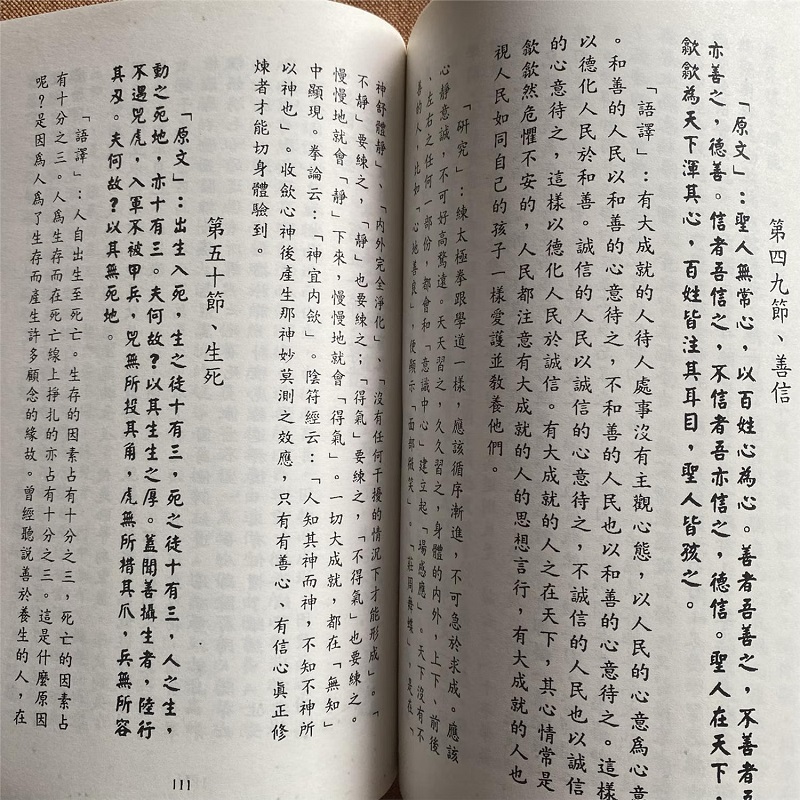 第四九節、善信
「原文」：聖人無常心，以百姓心為心。善者吾善之，不善者吾
亦善之，德善。信者吾信之，不信者吾亦信之，德信。聖人在天下，
歙歙為天下渾其心，百姓皆注其耳目，聖人皆孩之。
「語譯」：有大成就的人待人處事沒有主觀心態，以人民的心意為心意
。和善的人民以和善的心意待之，不和善的人民也以和善的心意待之。這樣
以德化人民於和善。誠信的人民以誠信的心意待之，不誠信的人民也以誠信
的心意待之，這樣以德化人民於誠信。有大成就的人之在天下，其心情常是
歙歙然危懼不安的，人民都注意有大成就的人的思想言行，有大成就的人也
視人民如同自己的孩子一樣愛護並教養他們。
「研究」：練太極拳跟學道一樣，應該循序漸進，不可急於求成。應該
心靜意誠，不可好高騖遠。天天習之，久久習之，身體的內外，上下、前後
、左右之任何一部份，都會和「意識中心」建立起「場感應」。天下沒有不
善的人，比如「心地善良」，便顯示「面部微笑」。「莊周舞蝶」，是在「
神舒體靜」、「內外完全淨化」、「沒有任何干擾的情況下才能形成」。「
不靜」要練之，「靜」也要練之；「得氣」要練之，「不得氣」也要練之。
慢慢地就會「靜」下來，慢慢地就會「得氣」。一切大成就，都在「無知」
中顯現。拳論云：「神宜內歛」。陰符經云：「人知其神而神，不知不神所
以神也」。收歛心神後產生那神妙莫測之效應，只有有善心、有信心真正修
煉者才能切身體驗到。
第五十節、生死
「原文」：出生入死，生之徒十有三，死之徒十有三，人之生，
動之死地，亦十有三。夫何故？以其生生之厚。蓋聞善攝生者，陸行
不遇兕虎，入軍不被甲兵，兕無所投其角，虎無所措其爪，兵無所容
其刃。夫何故？以其無死地。
「語譯」：人自出生至死亡。生存的因素占有十分之三，死亡的因素占
有十分之三。人為生存而在死亡線上掙扎的亦占有十分之三。這是什麼原因
呢？是因為人為了生存而產生許多顧念的緣故。曾經聽說善於養生的人，在
111